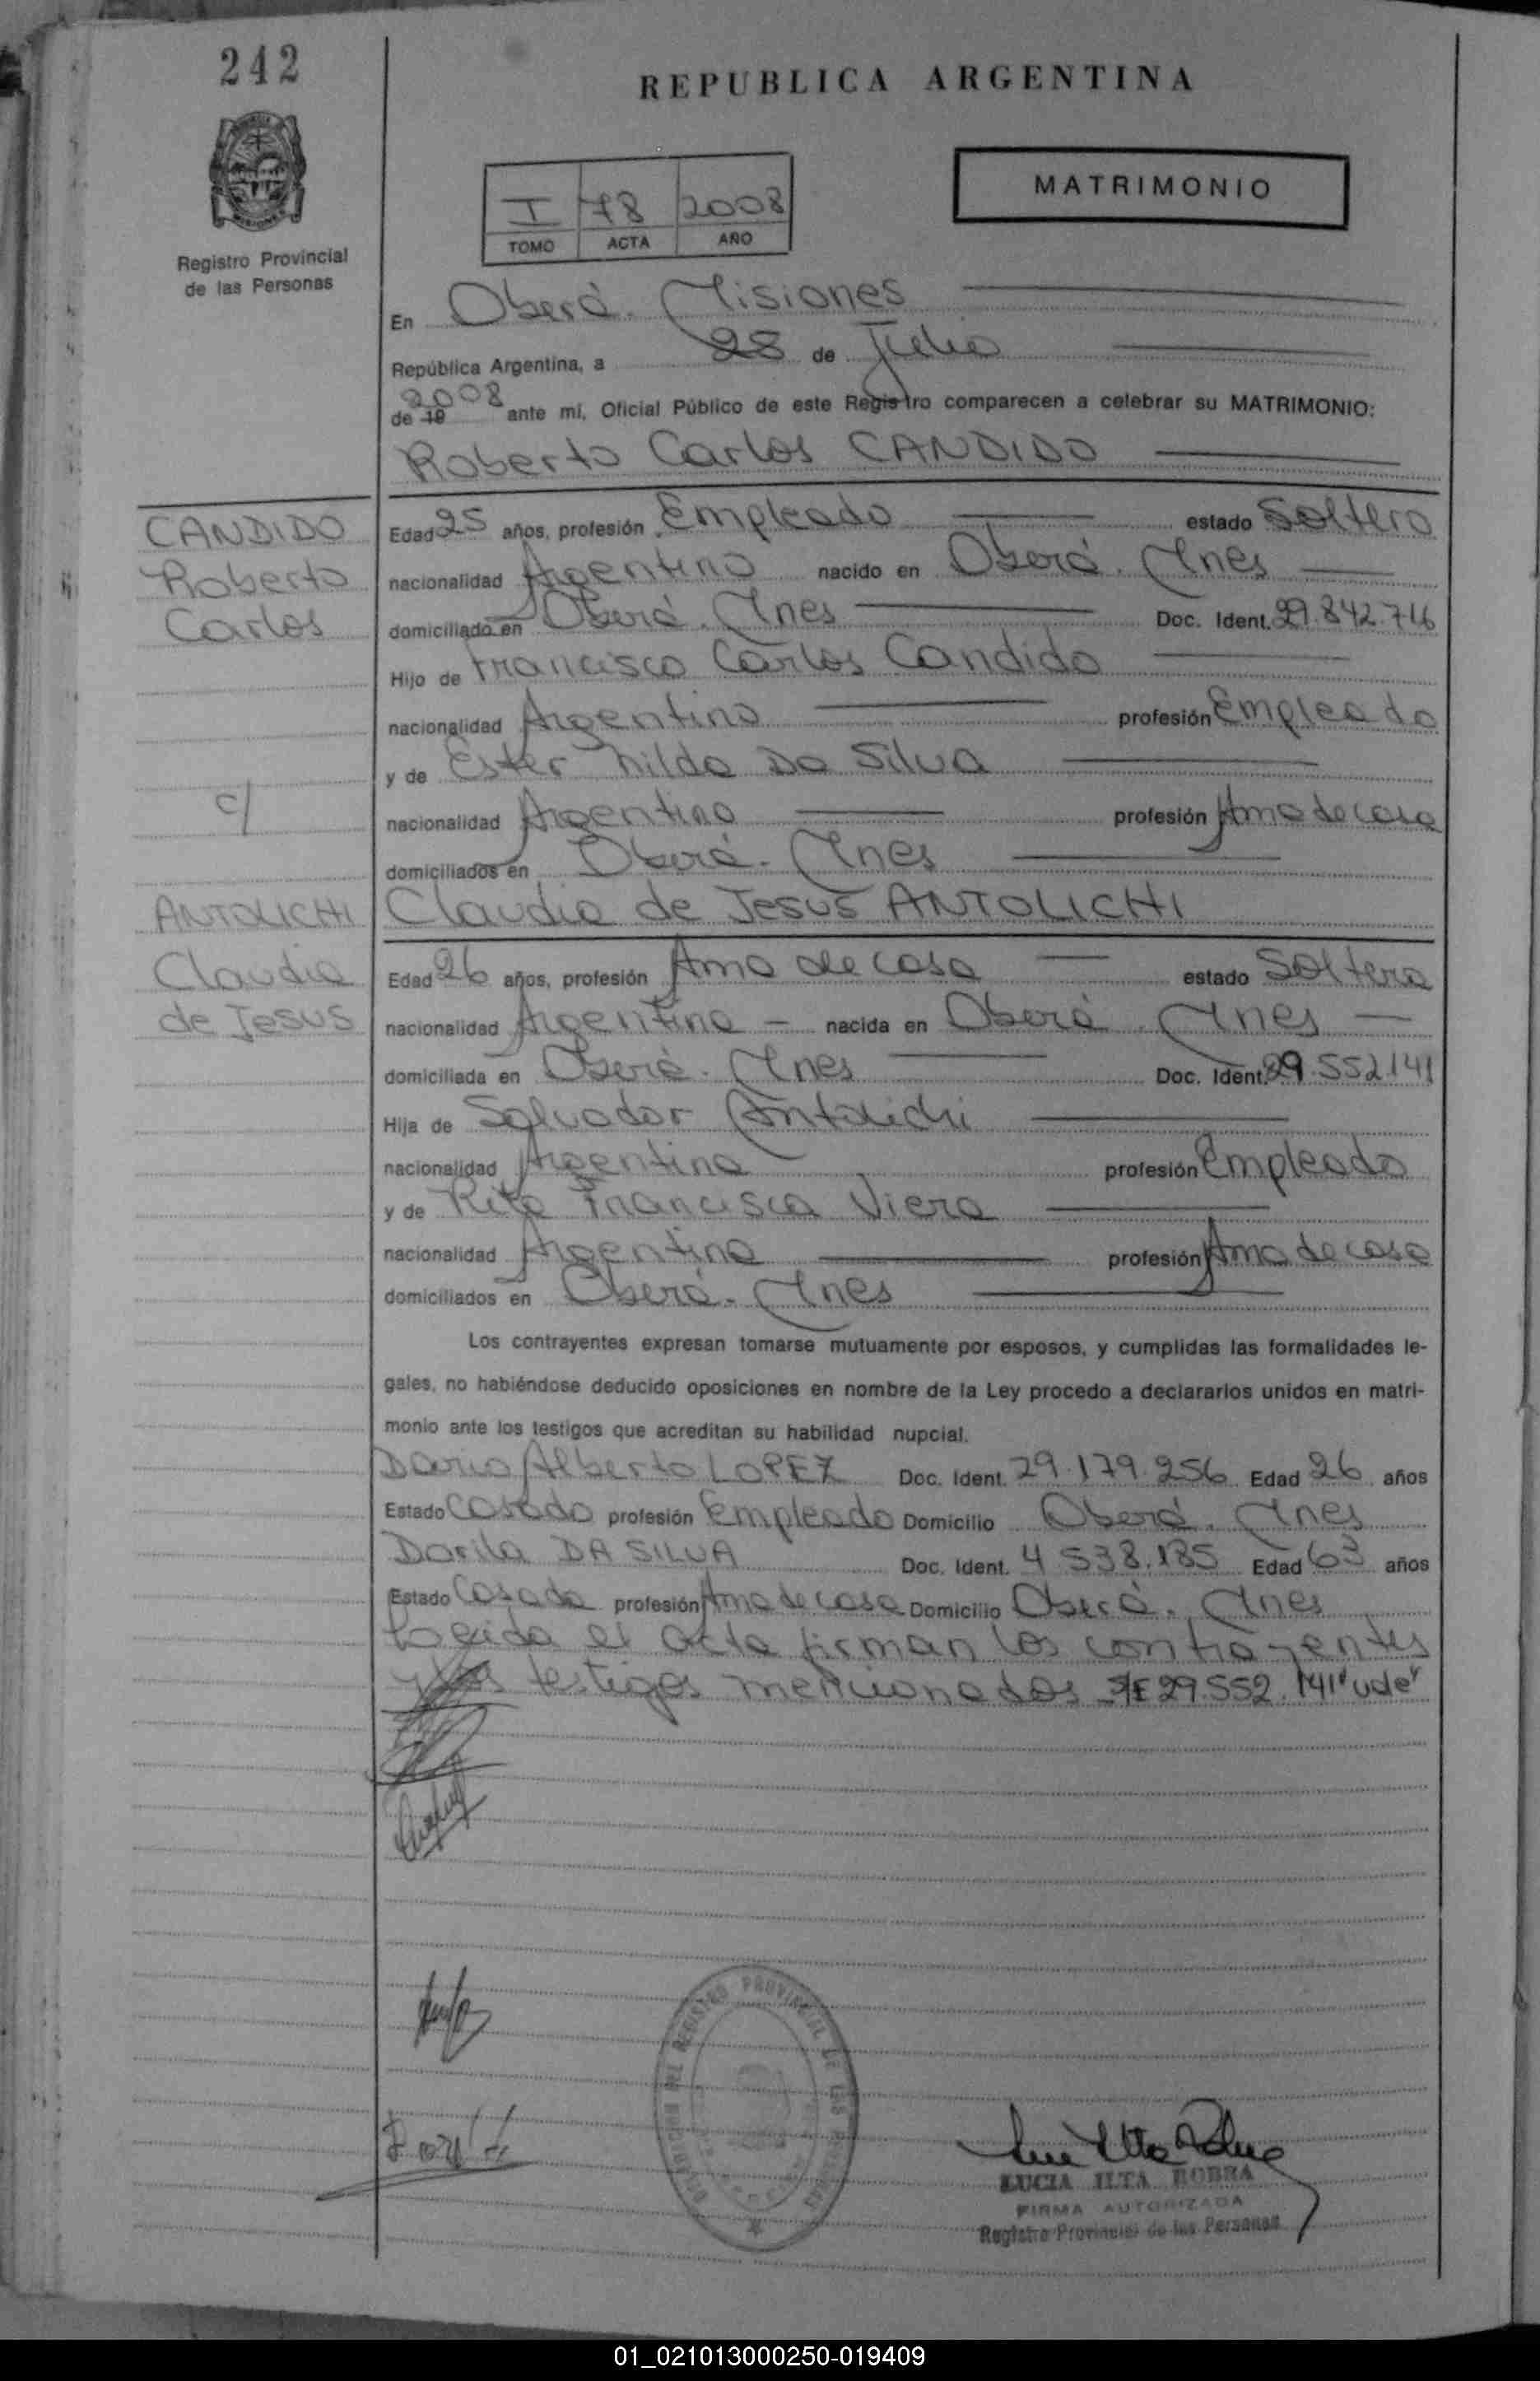 242
REPUBLICA ARGENTINA
MATRIMONIO
I 78 2008
TOMO ACTA AÑO
Registro Provincial
de las Personas
En Oberá. Misiones
República Argentina, a 28 de Julio
de 19 2008 ante mí, Oficial Público de este Registro comparecen a celebrar su MATRIMONIO:
Roberto Carlos CANDIDO
CANDIDO
Roberto
Carlos
c/
ANTOLICHI
Claudia
de Jesus
Edad 25 años, profesión Empleado estado Soltero
nacionalidad Argentino nacido en Oberá. Mnes
domiciliado en Oberá. Mnes Doc. Ident. 29.842.716
Hijo de Francisco Carlos Candido
nacionalidad Argentino profesión Empleado
y de Ester Nilda Da Silva
nacionalidad Argentina profesión Ama de casa
domiciliados en Oberá. Mnes
Claudia de Jesus ANTOLICHI
Edad 26 años, profesión Ama de casa estado Soltera
nacionalidad Argentina nacida en Oberá. Mnes
domiciliada en Oberá. Mnes Doc. Ident. 29.552.141
Hija de Salvador Antolichi
nacionalidad Argentina profesión Empleado
y de Rita Francisca Viera
nacionalidad Argentina profesión Ama de casa
domiciliados en Oberá. Mnes
Los contrayentes expresan tomarse mutuamente por esposos, y cumplidas las formalidades le-
gales, no habiéndose deducido oposiciones en nombre de la Ley procedo a declararlos unidos en matri-
monio ante los testigos que acreditan su habilidad nupcial.
Dario Alberto LOPEZ Doc. Ident. 29.179.256 Edad 26 años
Estado Casado profesión Empleado Domicilio Oberá. Mnes
Dorila DA SILVA Doc. Ident. 4 538.185 Edad 63 años
Estado Casada profesión Ama de casa Domicilio Oberá. Mnes
Leida el acta firman los contrayentes
y los testigos mencionados S/E 29.552.141 "vale"
REGISTRO PROVINCIAL DE LAS PERSONAS
LUCIA ILTA BOBRA
FIRMA AUTORIZADA
Registro Provincial de las Personas
01_021013000250-019409